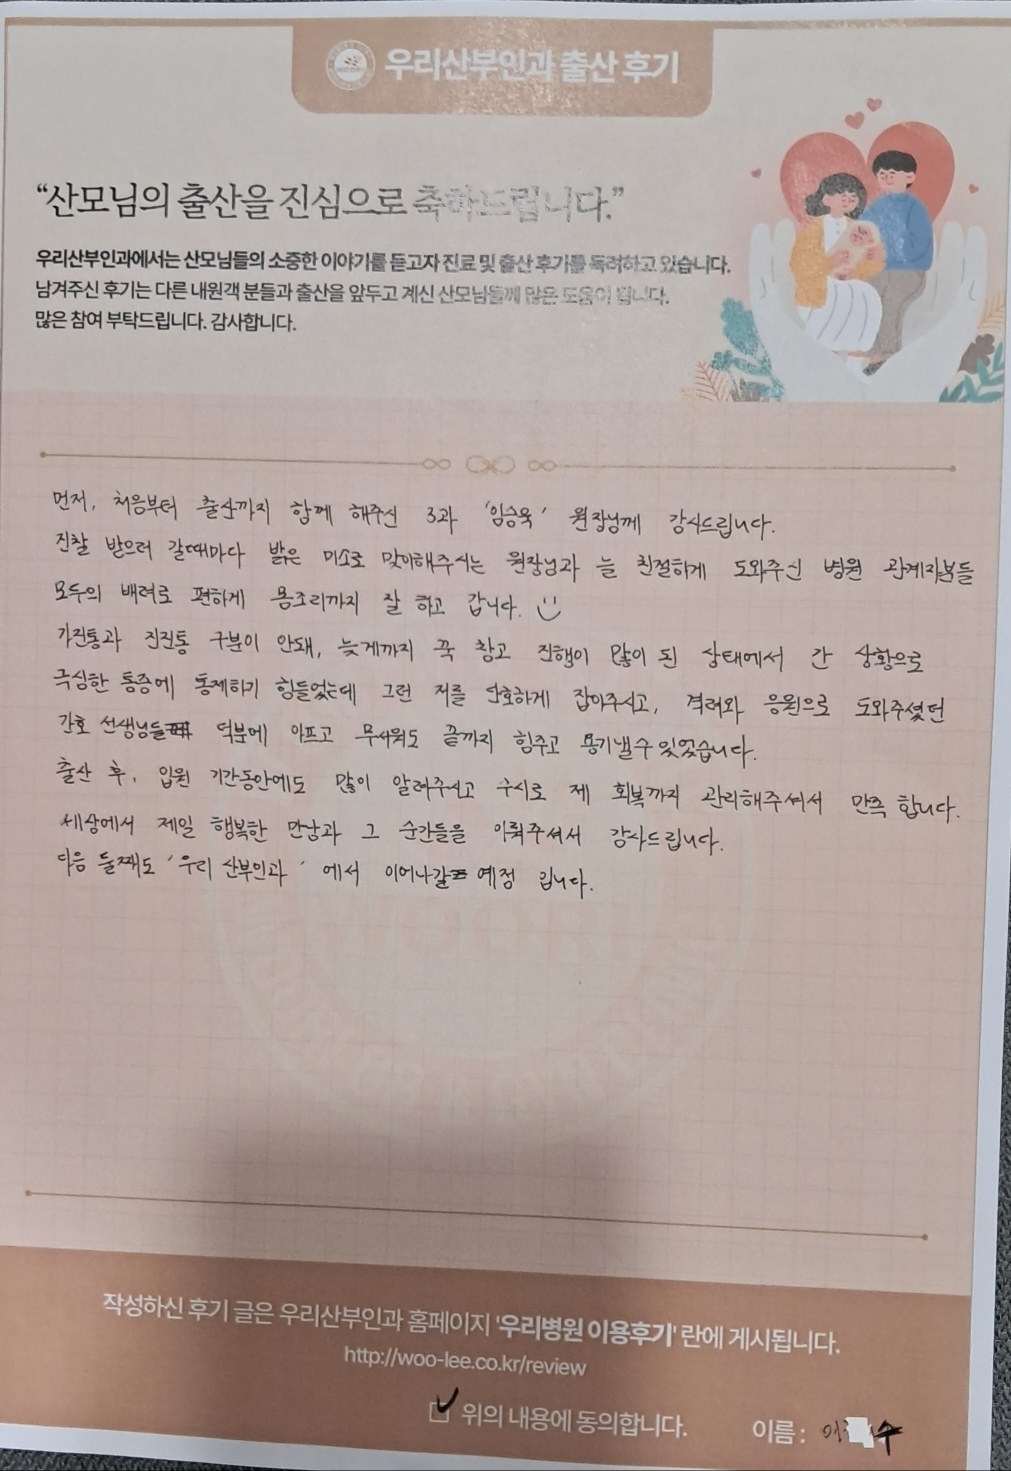 우리산부인과 출산 후기
“산모님의 출산을 진심으로 축하드립니다.”
우리산부인과에서는 산모님들의 소중한 이야기를 듣고자 진료 및 출산 후기를 독려하고 있습니다.
남겨주신 후기는 다른 내원객 분들과 출산을 앞두고 계신 산모님들께 많은 도움이 됩니다.
많은 참여 부탁드립니다. 감사합니다.
먼저, 처음부터 출산까지 함께 해주신 3과 '임승욱' 원장님께 감사드립니다.
진찰 받으러 갈때마다 밝은 미소로 맞이해주시는 원장님과 늘 친절하게 도와주신 병원 관계자분들
모두의 배려로 편하게 몸조리까지 잘 하고 갑니다.
가진통과 진진통 구분이 안돼, 늦게까지 꾹 참고 진행이 많이 된 상태에서 간 상황으로
극심한 통증에 통제하기 힘들었는데 그런 저를 단호하게 잡아주시고, 격려와 응원으로 도와주셨던
간호 선생님들 덕분에 아프고 무서워도 끝까지 힘주고 용기낼수 있었습니다.
출산 후, 입원 기간동안에도 많이 알려주시고 수시로 제 회복까지 관리해주셔서 만족 합니다.
세상에서 제일 행복한 만남과 그 순간들을 이뤄주셔서 감사드립니다.
다음 둘째도 '우리 산부인과' 에서 이어나갈 예정 입니다.
작성하신 후기 글은 우리산부인과 홈페이지 '우리병원 이용후기' 란에 게시됩니다.
http://woo-lee.co.kr/review
위의 내용에 동의합니다. 이름 : 이 수